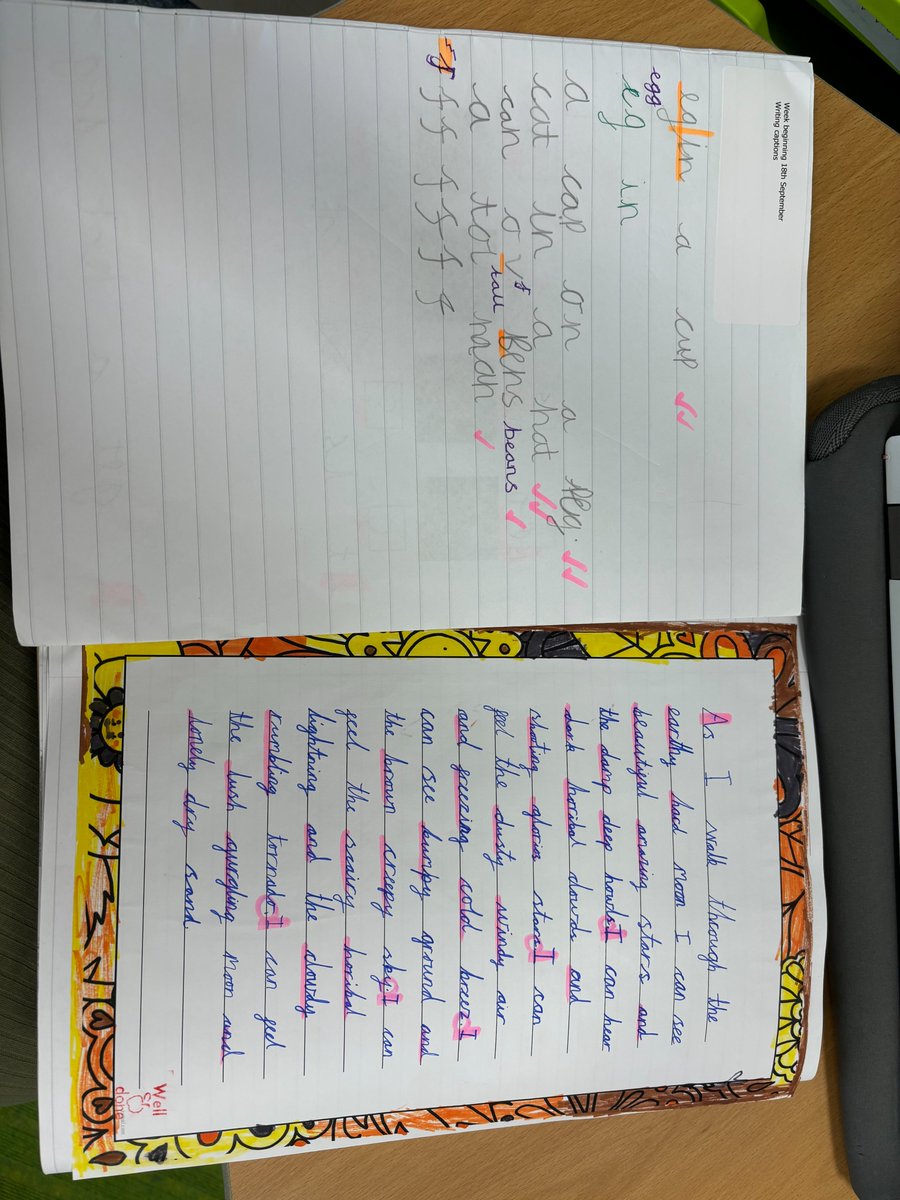 Week beginning 18th September
Writing captions
eg/in a cup
egg
eg in
a cap on a leg.
cat in a hat
can ov bens beans
f
tall
a tol man
f f f f f f f
As I walk through the
earthy had moon I can see
beautiful amazing stars and
the damp deep howls I can hear
dark horibal clowds and
shoting glorius stars I can
feel the dusty windy air
and freezing cold breez I
can see bumpy ground and
the brown creepy sky I can
feel the scarey horibal
lightning and the clowdy
rumbling tornado I can feel
the lush gurgling moon and
lonely dry sand.
Well
done